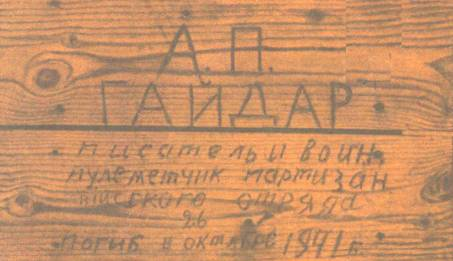 А. П.
ГАЙДАР
писатель и воин,
пулеметчик партизан
нйского отряда
26
погиб в октябре 1941 г.